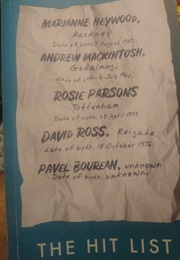 MARIANNE HEYWOOD,
Hackney
Date of birth: August
ANDREW MACKINTOSH,
Godalming,
Date of birth: July
ROSIE PARSONS
Tottenham
Date of birth: 23 April 1995
DAVID ROSS, Reigate
date of birth: 17 October 1976.
PAVEL BOUREAN, unknown
Date of birth, unknown.
THE HIT LIST